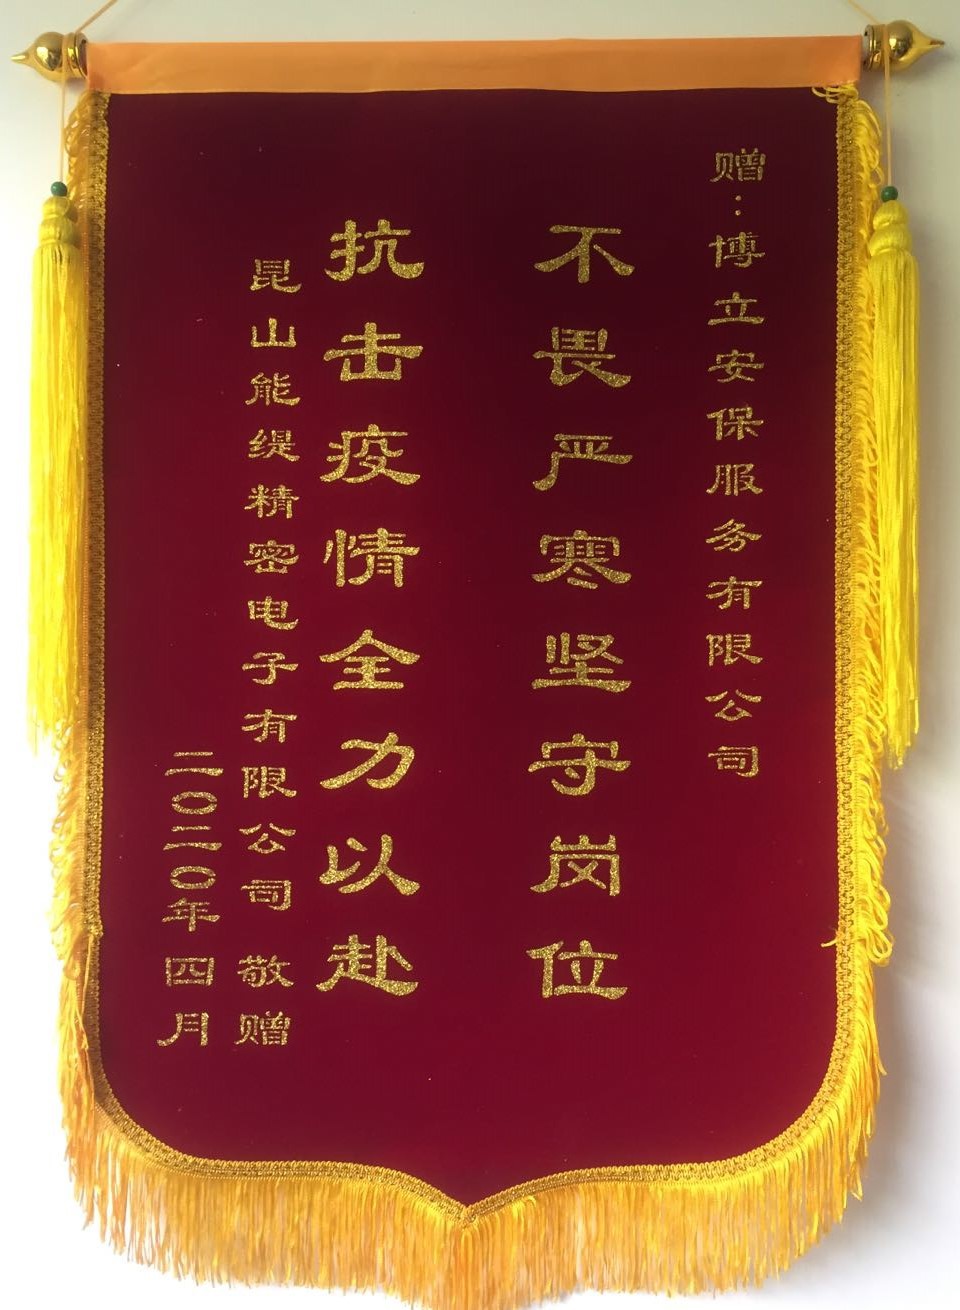 赠：博立安保服务有限公司
不畏严寒坚守岗位
抗击疫情全力以赴
昆山能缇精密电子有限公司 敬赠
二〇二〇年四月